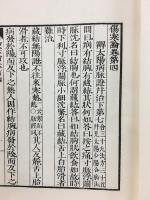 傷寒論卷第四
辨太陽病脉證并治下第七
問曰病有結胸有藏結其狀何如答曰按之痛寸脉浮關
脉沉名曰結胸也何謂藏結答曰如結胸狀飲食如故時
時下利寸脉浮關脉小細沉緊名曰藏結舌上白胎滑者
難治
藏結無陽證不往來寒熱其人反靜舌上胎
滑者不可攻也
病發於陽而反下之熱入因作結胸病發於陰而反下之